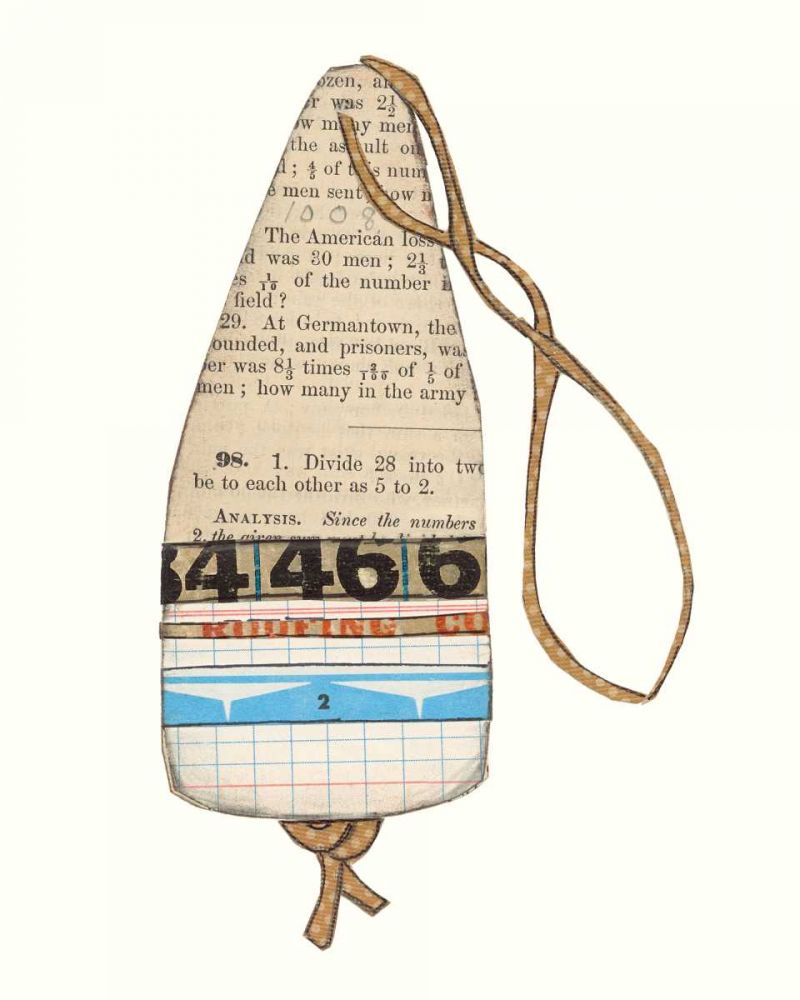 ozen, an
r was 2½
w many men
the assault on
d; ⅘ of this num
e men sent, how m
1008
The American loss
d was 30 men; 2⅓
es 1/10 of the number i
field?
29. At Germantown, the
ounded, and prisoners, was
er was 8⅓ times 2/100 of ⅕ of
men; how many in the army
98. 1. Divide 28 into two
be to each other as 5 to 2.
ANALYSIS. Since the numbers
2. the given sum must be divided
34 46 6
ROOFING CO
2